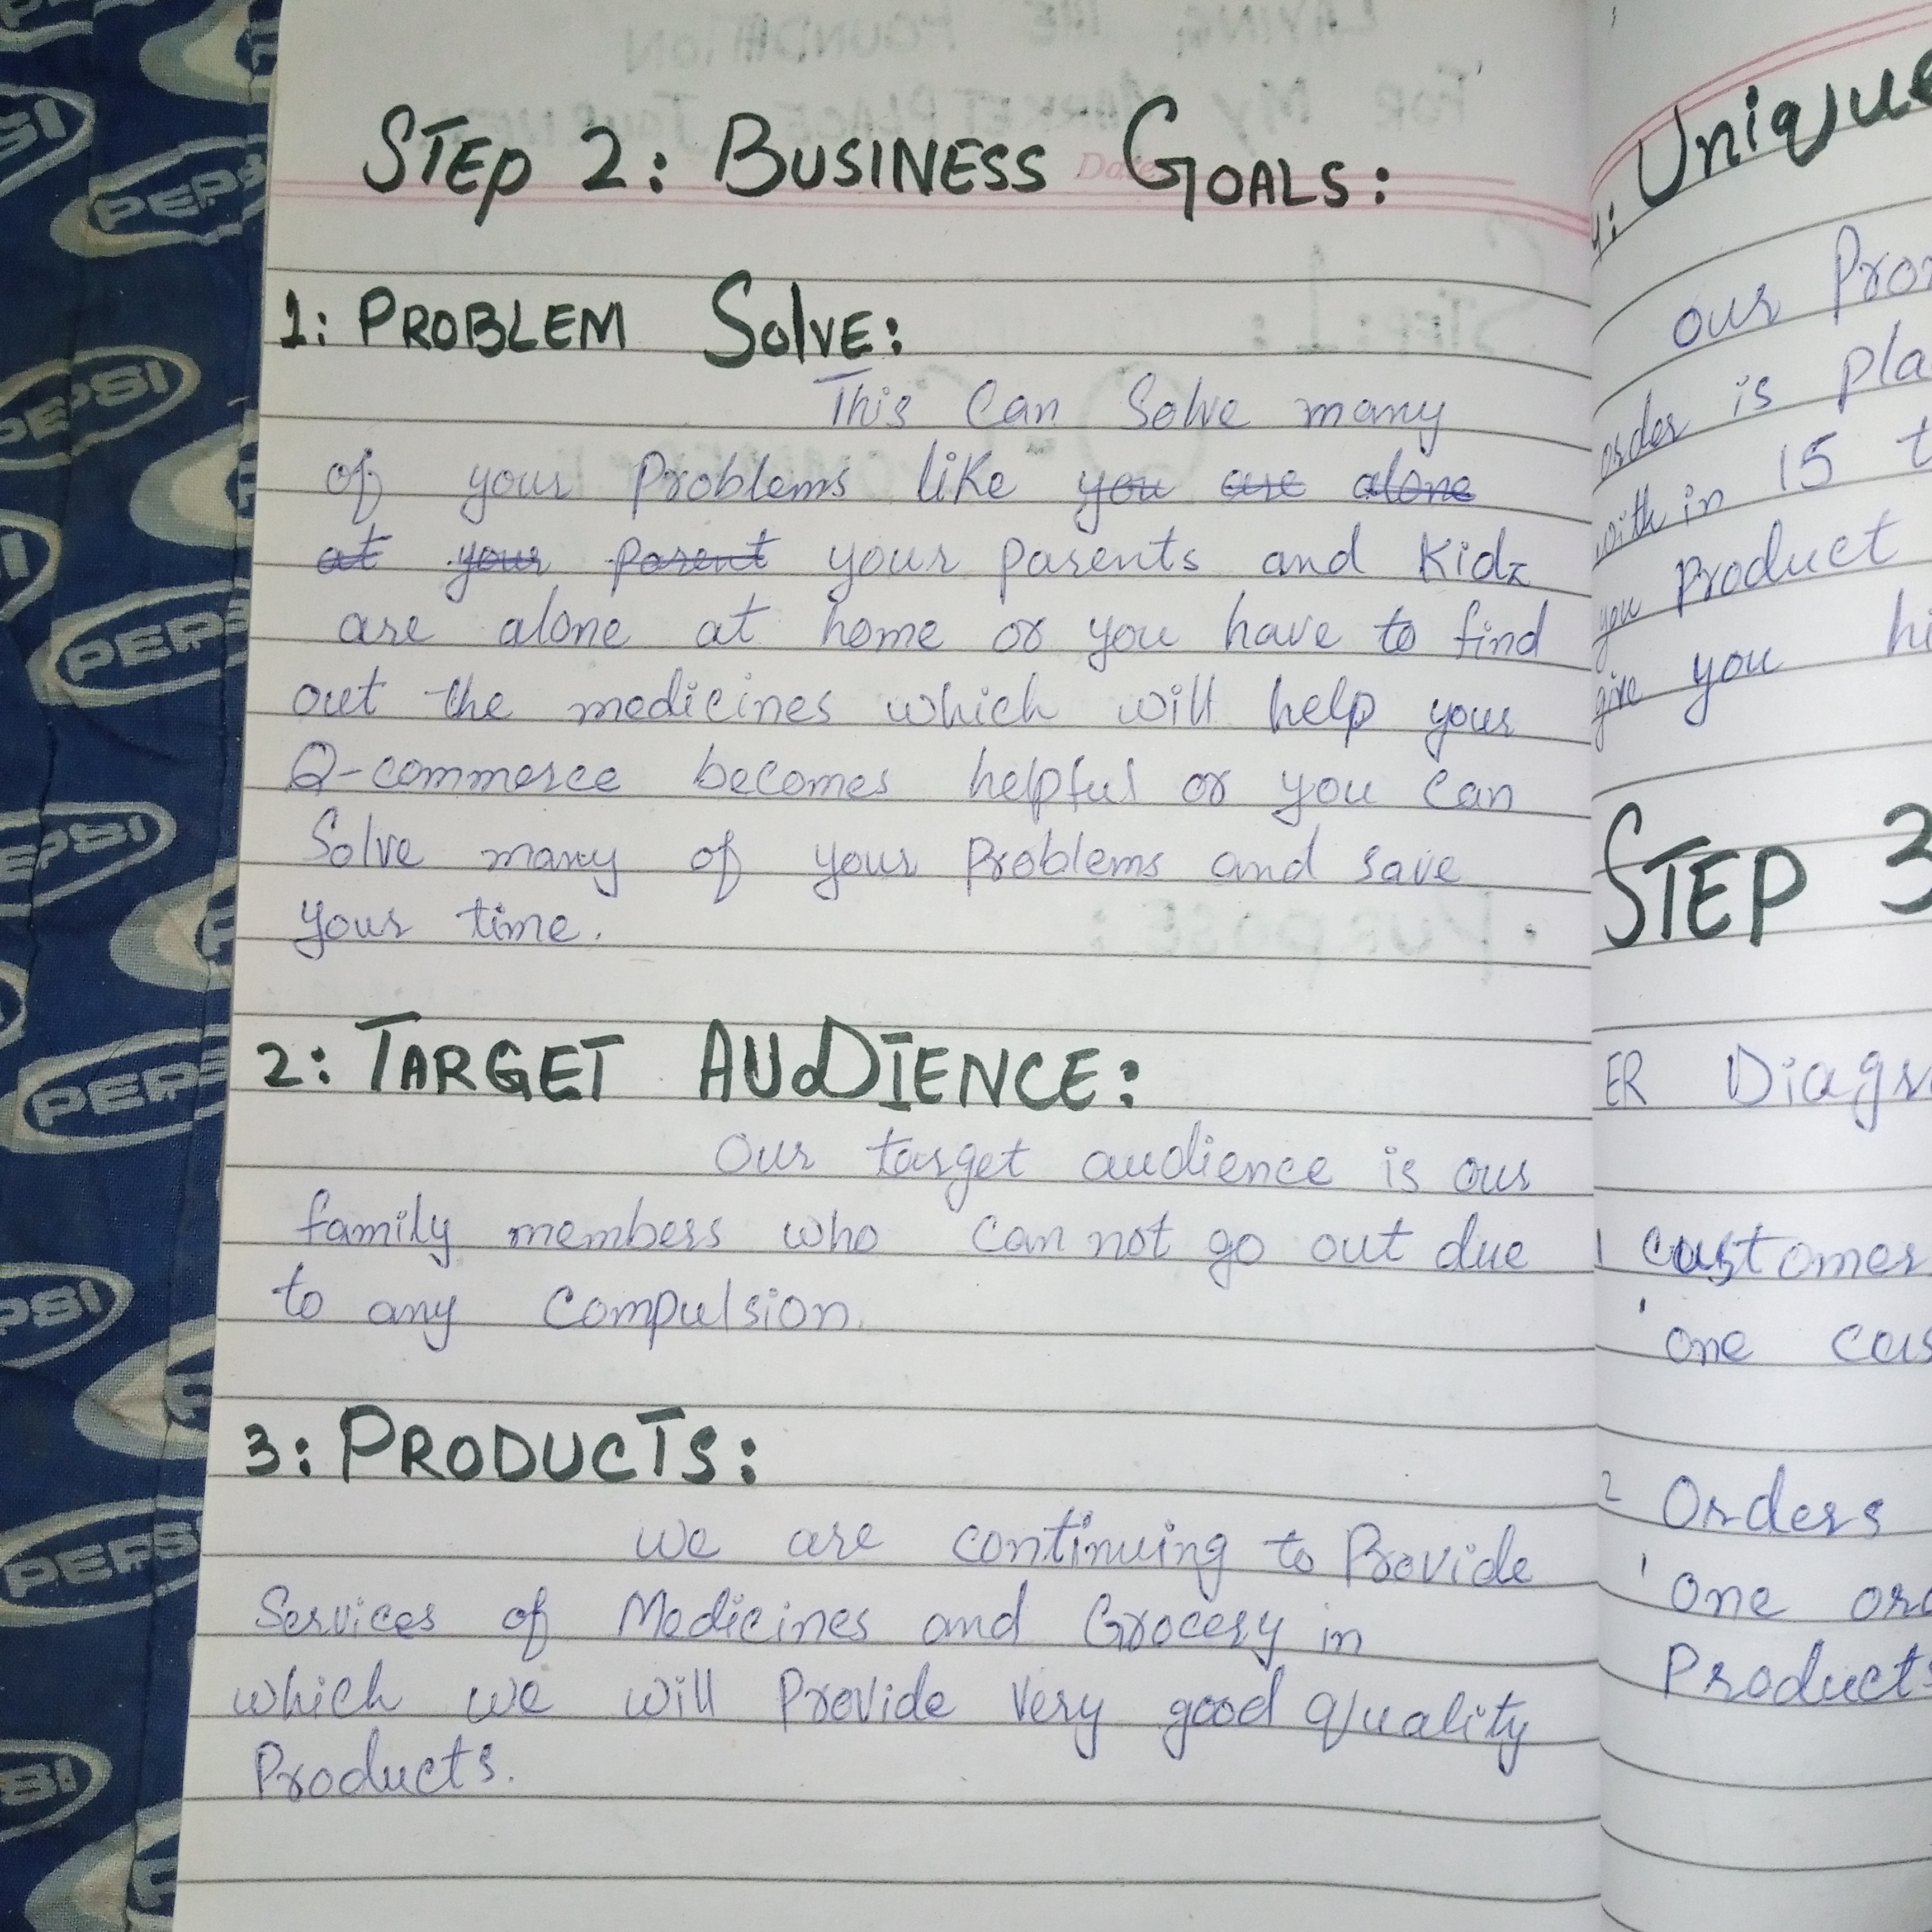 STEP 2: BUSINESS GOALS:
1: PROBLEM SOLVE:
This Can Solve many
of your Problems like ~~you are alone~~
~~at your parent~~ your parents and Kidz
are alone at home or you have to find
out the medicines which will help your
Q-commerce becomes helpful or you can
Solve many of your Problems and save
your time.
2: TARGET AUDIENCE:
Our target audience is our
family members who can not go out due
to any Compulsion.
3: PRODUCTS:
we are continuing to Provide
Services of Medicines and Grocery in
which we will Provide Very good quality
Products.
4: Unique
our
order is
with in 15
you Product
give you
STEP 3
ER
1 customer
one
2 Orders
one
Products
PEPSI
PEPSI
PEPSI
PEPSI
PEPSI
PEPSI
PEPSI
PEPSI